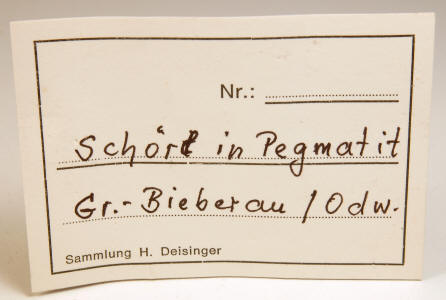 Nr.:
Schörl in Pegmatit
Gr.-Bieberau / Odw.
Sammlung H. Deisinger